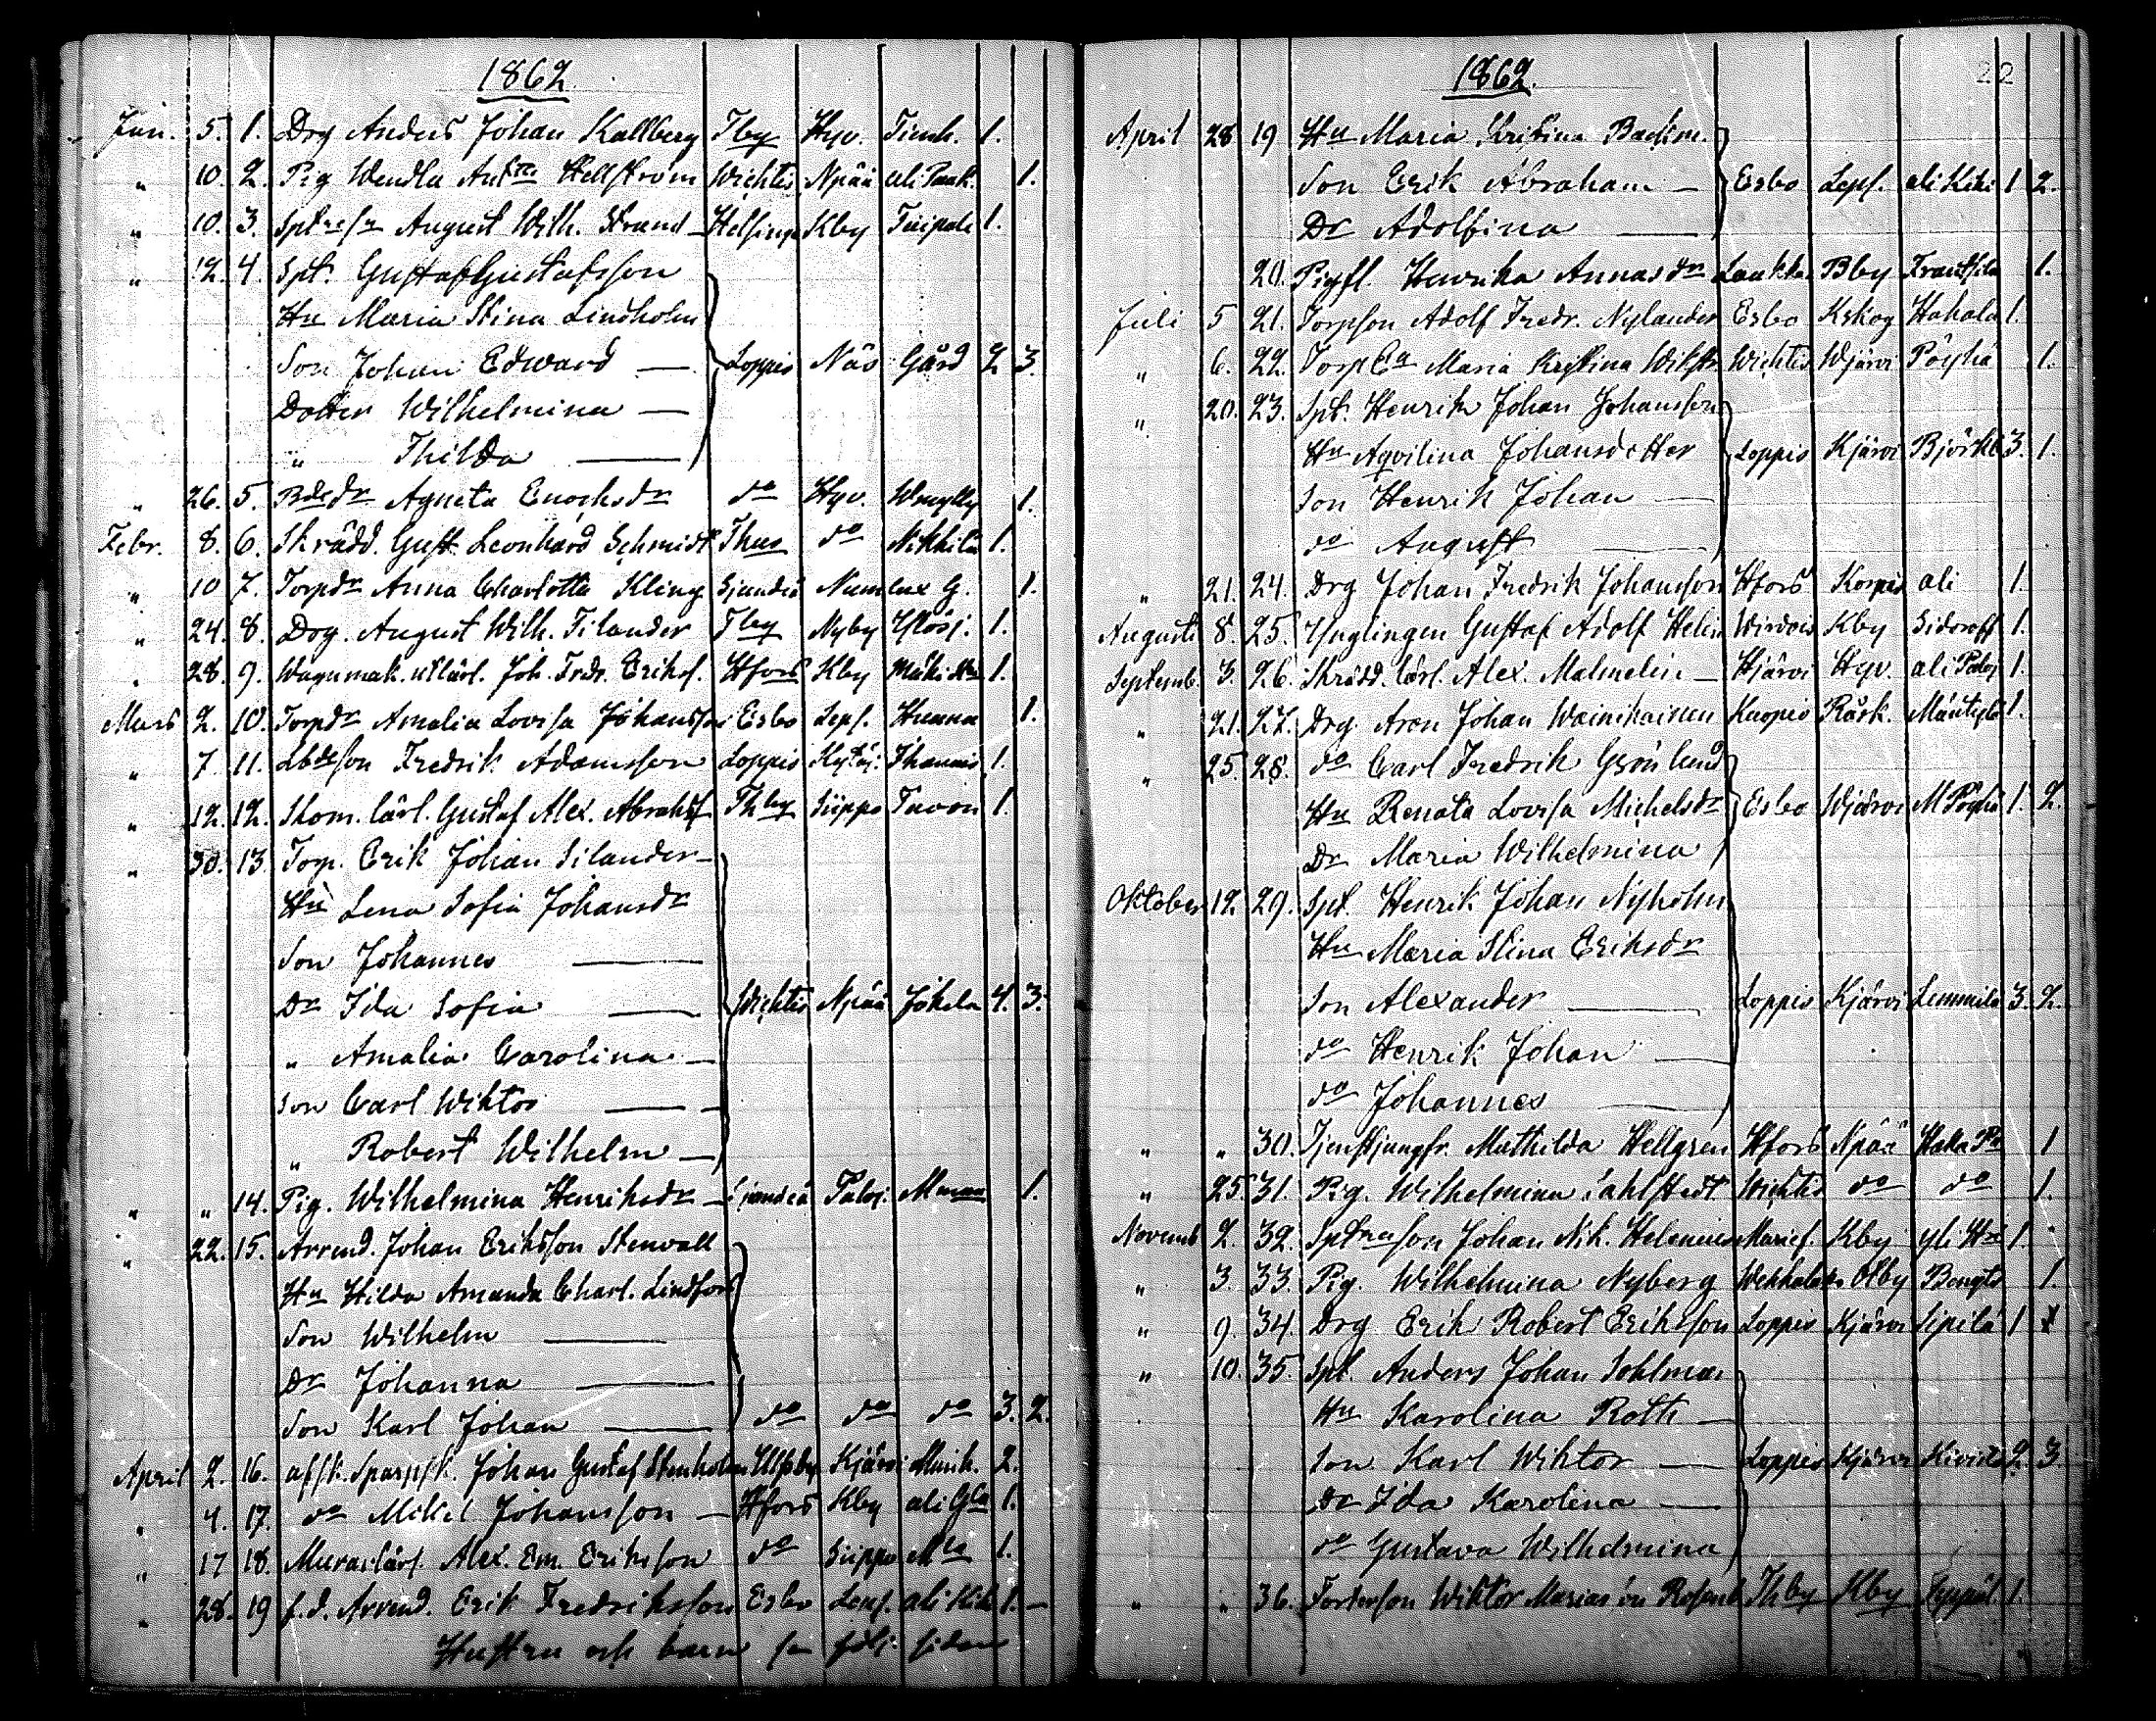 1862.
Jan. 5. 1. Drg Anders Johan Kallberg Tby Hyv. Timh. 1.
" 10. 2. Pig Wendla Hellström Wichtis Npää ali Paak. 1.
" 10. 3. August Wilh. Strand Helsinge Kby Tuipale 1.
" 12. 4. Spt. Gustaf Gustafsson
Hu Maria Stina Lindholm
Son Johan Edward — Loppis Näs Gård 2 3.
Dotter Wilhelmina —
" Thilda —
" 26. 5. Agneta Enochsdr do Hyv. 1.
Febr. 8. 6. Skrädd. Gust. Leonhard Schmidt Thus do Nikkilä 1.
" 10 7. Torpdr Anna Charlotta Kling Sjundeå Numlax G. 1.
" 24. 8. Drg. August Wilh. Filander Tby Nyby 1.
" 28. 9. Wagnmak. Joh. Frdr. Eriks. Hfors Kby 1.
Mars 2. 10. Torpdr Amalia Lovisa Johansson Esbo Leps. Hunna 1.
" 7 11. Lbdsson Fredrik Adamsson Loppis Kytäj. 1.
" 12. 12. Skom. lärl. Gustaf Alex. Abrahsf Thby Siippo Tavon 1.
" 30. 13 Torp. Erik Johan Silander —
Hu Lena Sofia Johansdr
Son Johannes —
Dr Ida Sofia — Wichtis Npää Jokela 4. 3.
" Amalia Carolina —
Son Carl Wiktor —
" Robert Wilhelm —
" " 14. Pig. Wilhelmina Henriksdr — Sjundeå Paloj. 1.
" 22. 15. Arrend. Johan Eriksson Stenvall
Hu Hilda Amanda Charl. Lindfors
Son Wilhelm —
Dr Johanna —
Son Karl Johan — do do do 3. 2.
April 2. 16. afsk. Johan Gustaf Stenholm Ulfsby Kjärvi 2.
" 4. 17. do Mikel Johansson — Hfors Kby ali 1.
" 17 18. Murarlärl. Alex. Em. Eriksson do Siippo 1.
" 28. 19 f. d. Arrend. Erik Fredriksson Esbo Leps. ali Kik 1. —
Hustru och barn
1862. 22
April 28 19 Hu Maria Kristina
Son Erik Abraham — Esbo Leps. ali Kiki 1 2.
Dr Adolfina —
20. Pigfl. Henrika Annasdr Bby Frantsila 1.
Juli 5 21. Torpson Adolf Fredr. Nylander Esbo Kskog Hakala 1.
" 6. 22. Maria Kristina Wichtis Wjärvi Pöyhä 1.
" 20. 23. Spt. Henrik Johan Johansson
Hu Aqvilina Johansdotter Loppis Kjärvi 3. 1.
Son Henrik Johan —
do August —
" 21. 24. Drg Johan Fredrik Johansson Hfors Korpis ali 1.
Augusti 8. 25. Ynglingen Gustaf Adolf Helin Wirdois Kby Sidoroff 1.
Septemb. 3. 26. Skrädd. lärl. Alex. Malmelin — Hjärvi Hyv. ali Paloj 1.
" 21. 27. Drg. Aron Johan Wainikainen Kuopio Räsk. 1.
" 25. 28. do Carl Fredrik Grönlund
Hu Renata Lovisa Michelsdr Esbo Wjärvi M Pöyhä 1. 2.
Dr Maria Wilhelmina
Oktober 12. 29. Spt. Henrik Johan Nyholm
Hu Maria Stina Eriksdr
Son Alexander — Loppis Kjärvi Lemmila 3. 2.
do Henrik Johan —
do Johannes —
" " 30. Tjenstjungfr. Mathilda Hellgren Hfors Npää 1
" 25 31. Pig. Wilhelmina Sahlstedt Wichtis do do 1.
Novemb 2. 32. Johan Nik. Helenius Marief. Kby 1.
" 3. 33. Pig. Wilhelmina Nyberg Wekkelaks Olby Bengts 1.
" 9. 34. Drg Erik Robert Eriksson Loppis Kjärvi Sipilä 1
" 10. 35. Spt. Anders Johan Sohlman
Hu Karolina Roth —
Son Karl Wiktor — Loppis Kjärvi 2. 3.
Dr Ida Karolina —
do Gustava Wilhelmina
" " 36. Wiktor Thby Kby 1.